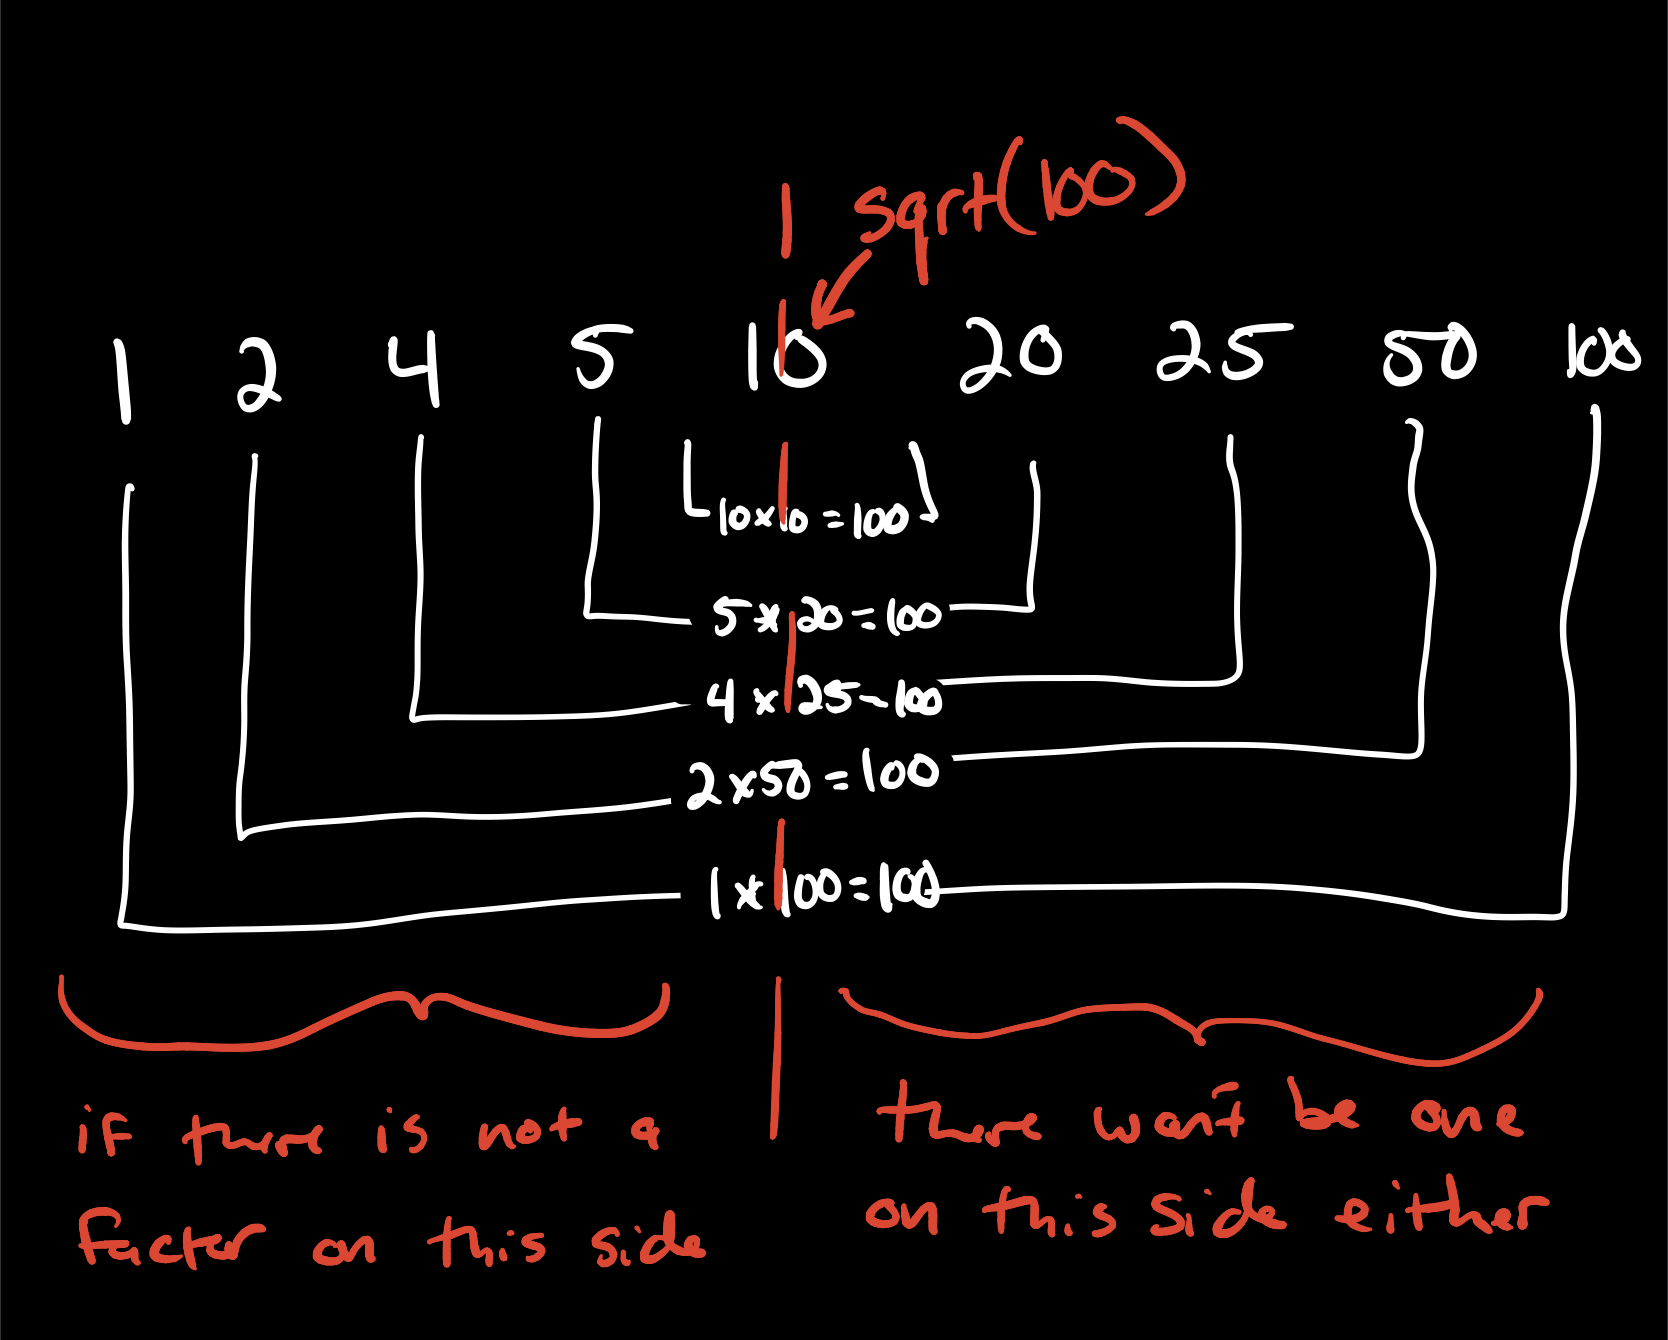 sqrt(100)
1 2 4 5 10 20 25 50 100
10x10=100
5x20=100
4x25-100
2x50=100
1x100=100
if there is not a
factor on this side
there won't be one
on this side either